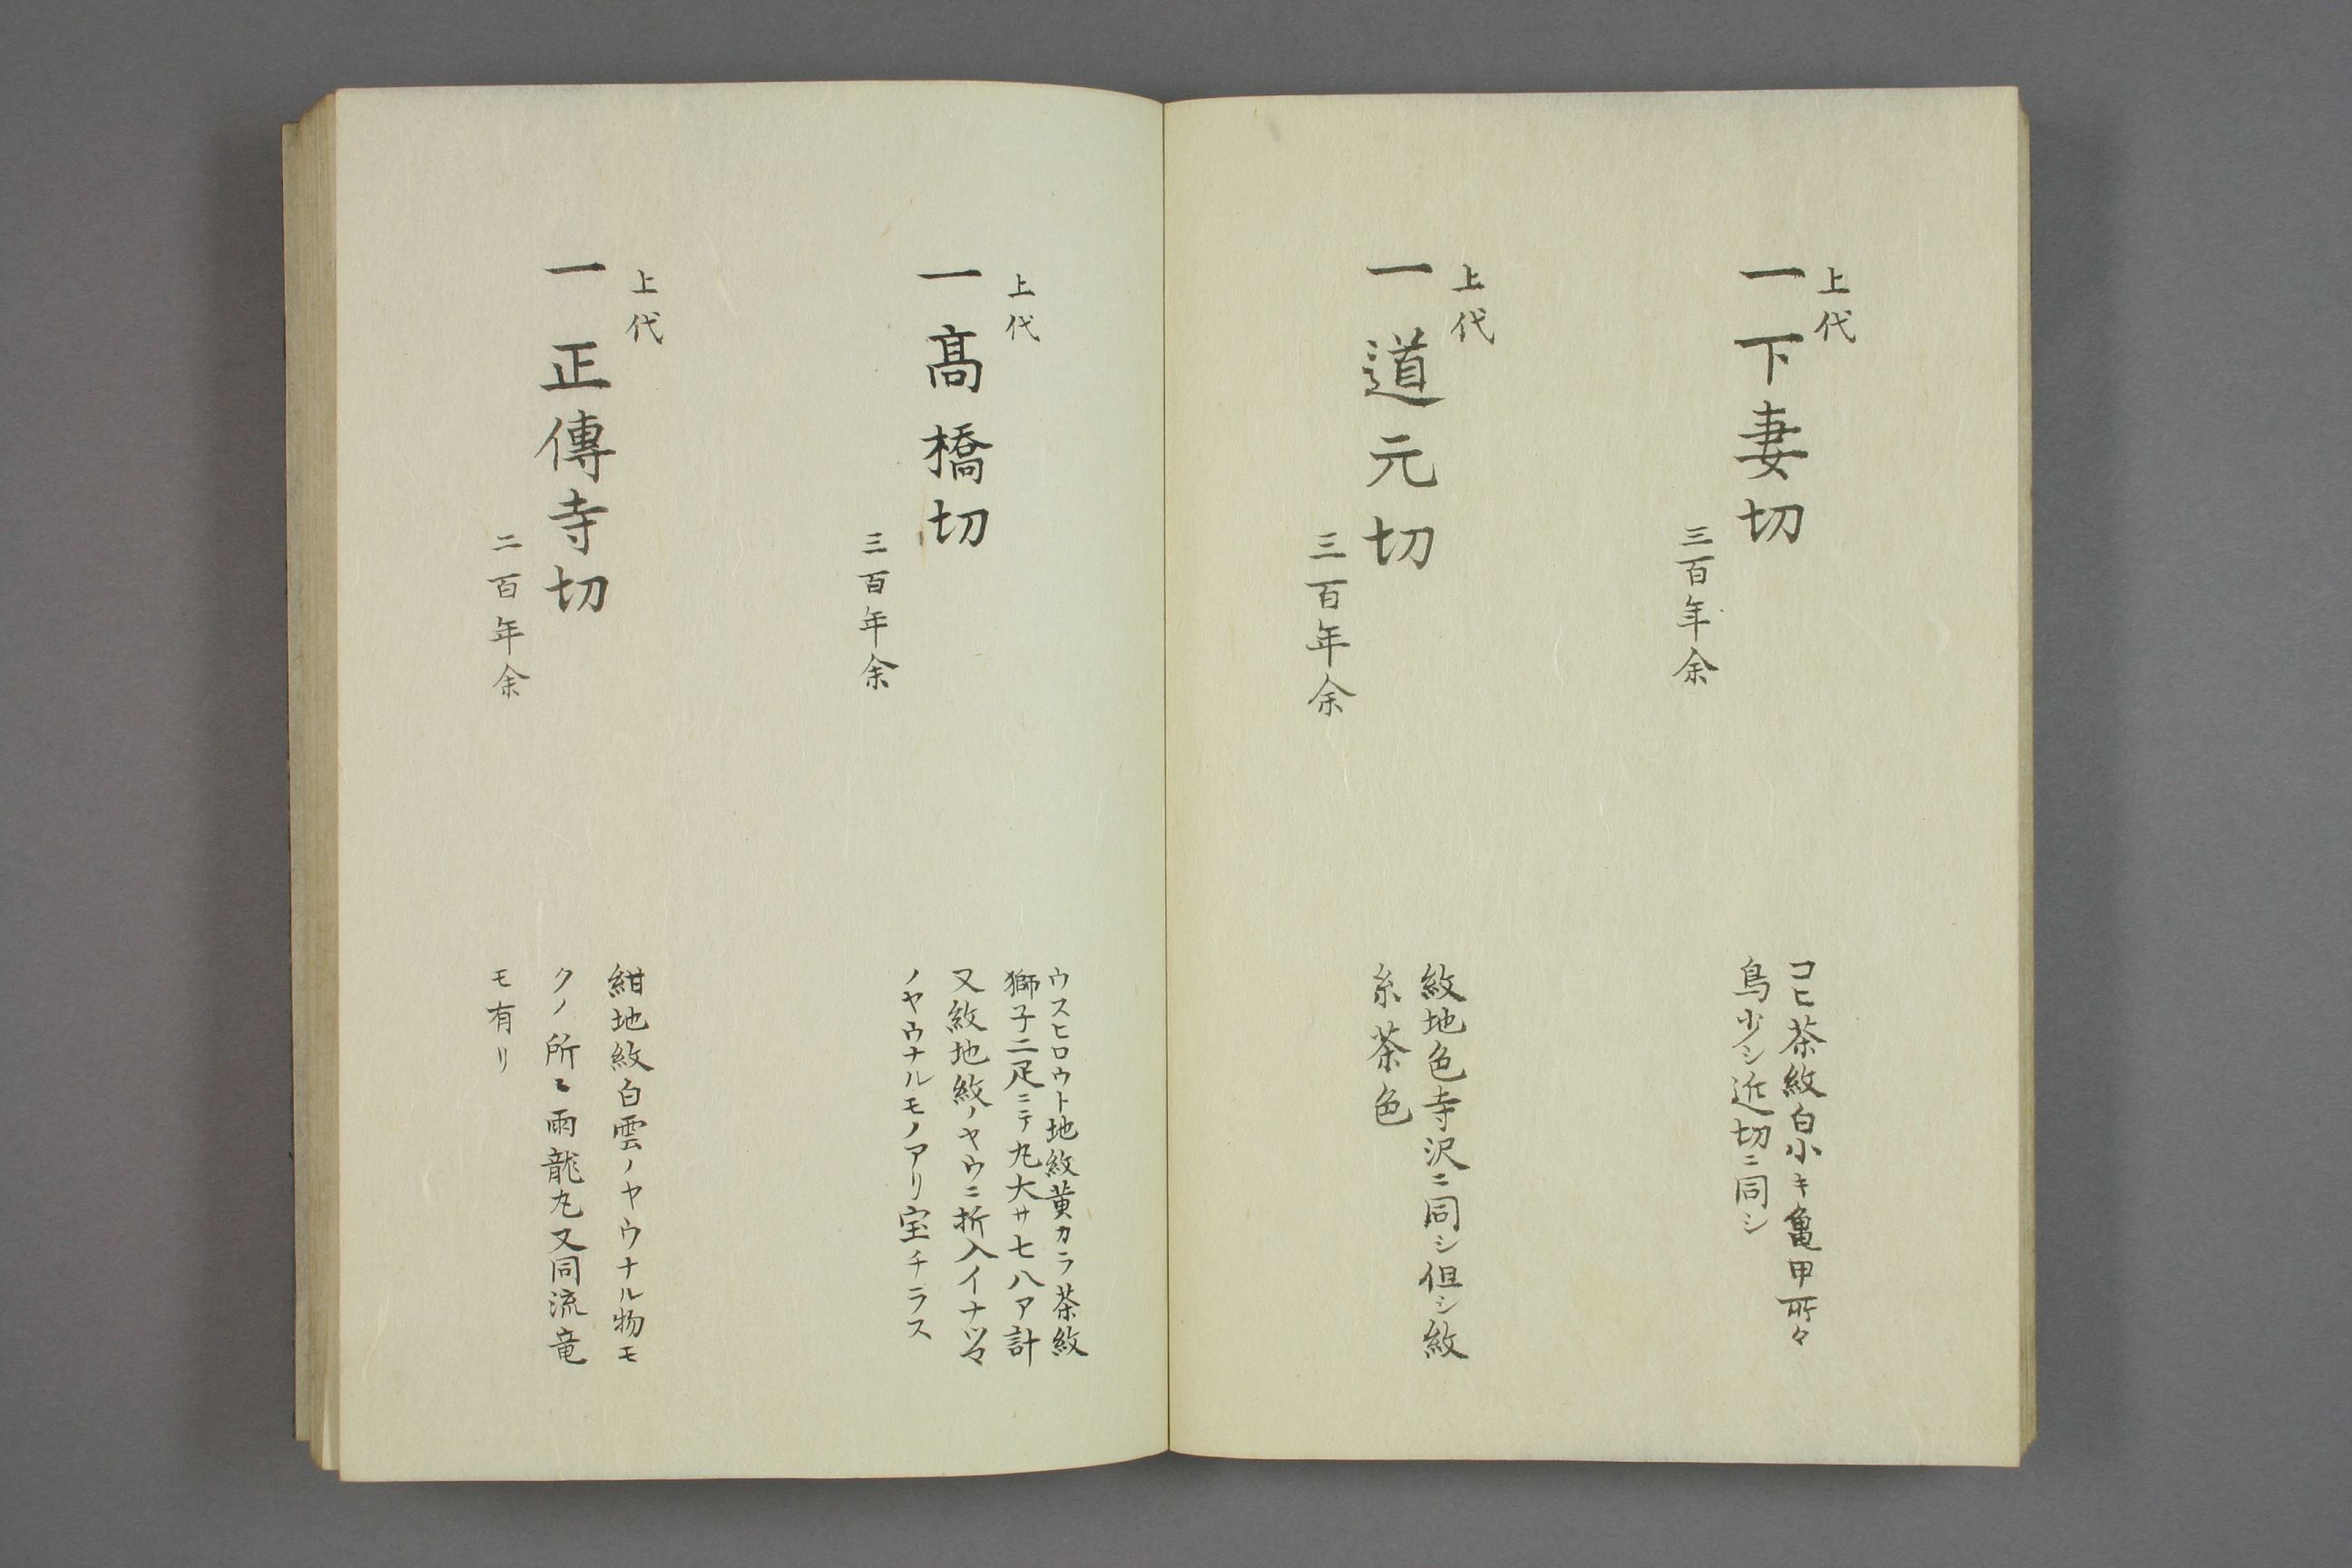 上代
一下妻切
三百年余
コヒ茶紋白小キ亀甲所々
鳥少シ近切ニ同シ
上代
一道元切
三百年余
紋地色寺沢ニ同シ但シ紋
糸茶色
上代
一髙橋切
三百年余
ウスヒロウト地紋黄カラ茶紋
獅子二疋ニテ丸大サ七八ア計
又紋地紋ノヤウニ折入イナツマ
ノヤウナルモノアリ宝チラス
上代
一正傳寺切
二百年余
紺地紋白雲ノヤウナル物モ
クノ所〻雨龍丸又同流竜
モ有リ